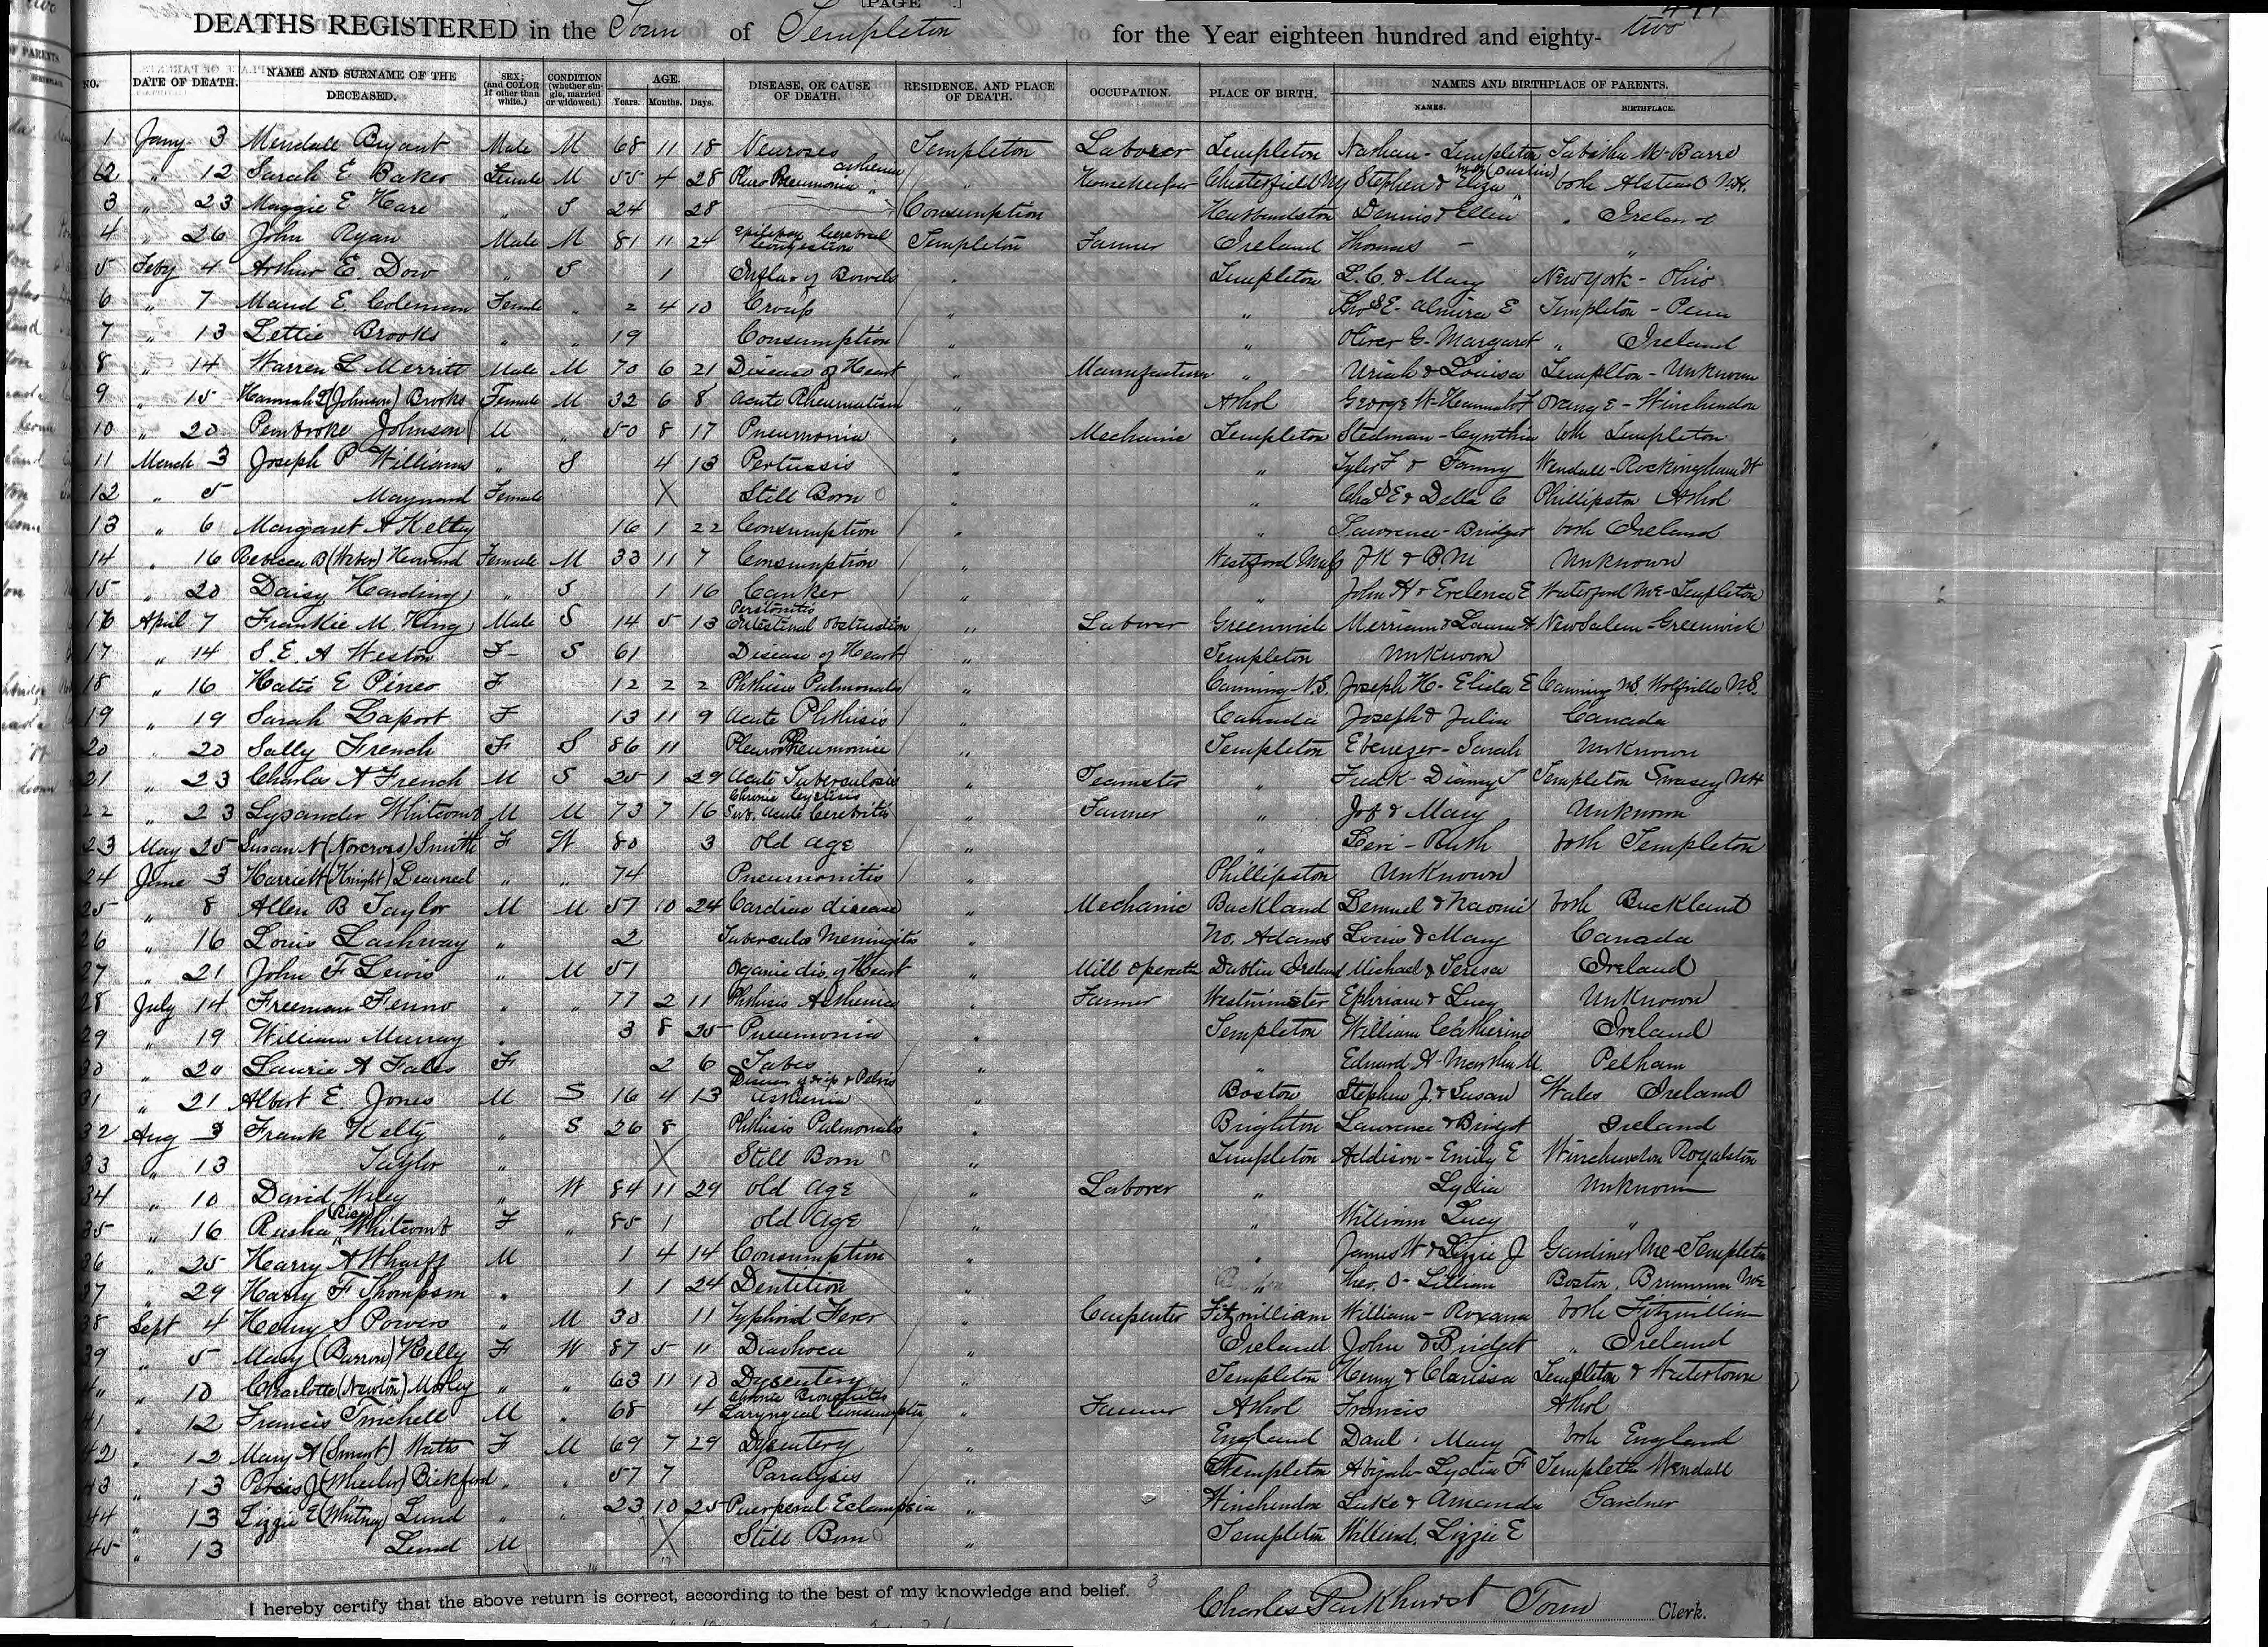 [PAGE .]
DEATHS REGISTERED in the Town of Templeton for the Year eighteen hundred and eighty- two
NO. DATE OF DEATH. NAME AND SURNAME OF THE DECEASED. SEX; (and COLOR if other than white.) CONDITION (whether single, married or widowed.) AGE. Years. Months. Days. DISEASE, OR CAUSE OF DEATH. RESIDENCE, AND PLACE OF DEATH. OCCUPATION. PLACE OF BIRTH. NAMES AND BIRTHPLACE OF PARENTS. NAMES. BIRTHPLACE.
1 Jany 3 Mendall Bryant Male M 68 11 18 Neuroses Templeton Laborer Templeton Nathan - Templeton Tabitha M - Barre
2 " 12 Sarah E Baker Female M 55 4 28 Pleuro Pneumonia asthenia " Housekeeper Chesterfield NH Stephen & Eliza (Dustin) both Alstead N.H.
3 " 23 Maggie E Hare " S 24 28 Consumption Hubbardston Dennis & Ellen " Ireland
4 " 26 John Ryan Male M 81 11 24 Epilepsy Cerebral Congestion Templeton Farmer Ireland Thomas - "
5 Feby 4 Arthur E. Dow " S 1 Inflam of Bowels " Templeton L. C. & Mary New York - Ohio
6 " 7 Maud E. Coleman Female " 2 4 10 Croup " " Thos E - Almira E Templeton - Penn
7 " 13 Lettie Brooks " " 19 Consumption " " Oliver G - Margaret " Ireland
8 " 14 Warren L Merritt Male M 70 6 21 Disease of Heart " Manufacturer " Uriah & Louisa Templton - Unknown
9 " 15 Hannah L (Johnson) Brooks Female M 32 6 8 Acute Rheumatism " Athol George W - Hannah F Orange - Winchendon
10 " 20 Pembroke Johnson M " 50 8 17 Pneumonia " Mechanic Templeton Stedman - Cynthia both Templeton
11 March 3 Joseph P Williams " S 4 13 Pertussis " " Tyler F & Fanny Wendall - Rockingham Vt
12 " 5 Maynard Female X Still Born " Chas E & Della C Phillipston Athol
13 " 6 Margaret A Kelty 16 1 22 Consumption " " Lawrence - Bridget both Ireland
14 " 16 Rebecca B (Weber) Howard Female M 33 11 7 Consumption " Westford Mass J K & B M Unknown
15 " 20 Daisy Harding " S 1 16 Canker " " John H & Evelena E Waterford Me - Templeton
16 April 7 Frankie M King Male S 14 5 13 Peritonitis Intestinal Obstruction " Laborer Greenwich Merriam & Laura A New Salem - Greenwich
17 " 14 S. E. A Weston F - S 61 Disease of Heart " Templeton Unknown
18 " 16 Hatie E Pineo F 12 2 2 Phthisis Pulmonalis " Canning N.S. Joseph H - Elisba E Canning N.S. Wolfville N.S.
19 " 19 Sarah Laport F 13 11 9 Acute Phthisis " Canada Joseph & Julia Canada
20 " 20 Sally French F S 86 11 Pleuro Pneumonia " Templeton Ebenezer - Sarah Unknown
21 " 23 Charles A French M S 25 1 29 Acute Tuberculosis Teamster " Templeton Swasey NH
22 " 23 Lysander Whitcomb M M 73 7 16 Chronic Cystitis Sub. Acute Cerebritis " Farmer " Jos & Mary Unknown
23 May 25 Susan N (Norcross) Smith F W 80 3 Old Age " " Levi - Ruth both Templeton
24 June 3 Harriett (Knight) Learned " " 74 Pneumonitis " Phillipston Unknown
25 " 8 Allen B Taylor M M 57 10 24 Cardiac disease " Mechanic Buckland Lemuel & Naomi both Buckland
26 " 16 Louis Lashway " 2 Tuberculos Meningitis " No. Adams Louis & Mary Canada
27 " 21 John F Lewis " M 51 Organic dis. of Heart " Mill Operator Dublin Ireland Michael & Teresa Ireland
28 July 14 Freeman Fenno " " 77 2 11 Phthisis Asthenica " Farmer Westminister Ephriam & Lucy Unknown
29 " 19 William Murray " 3 8 25 Pneumonia " Templeton William Catherine Ireland
30 " 20 Laurie A Fales F 2 6 Tabes " " Edward A - Martha M. Pelham
31 " 21 Albert E. Jones M S 16 4 13 Disease of Hip & Pelvis Asthenia " Boston Stephen J. & Susan Wales Ireland
32 Aug 3 Frank Kelty " S 26 8 Phthisis Pulmonalis " Brighton Lawrence & Bridget Ireland
33 " 13 Taylor " X Still Born " Templeton Addison - Emily E Winchendon Royalston
34 " 10 David Wiley " W 84 11 29 Old Age " Laborer " Lydia Unknown
35 " 16 Rusha (Rice) Whitcomb F " 85 1 Old Age " " William Lucy "
36 " 25 Harry A Wharff M 1 4 14 Consumption " James W & Lizzie J Gardiner Me - Templeton
37 " 29 Harry F Thompson " 1 1 24 Dentition " Theo. O - Lillian Boston,
38 Sept 4 Henry S Powers " M 30 11 Typhoid Fever " Carpenter Fitzwilliam William - Roxana both Fitzwilliam
39 " 5 Mary (Barron) Kelly F W 87 5 11 Diarhoea " Ireland John & Bridget " Ireland
40 " 10 Charlotte (Newton) Morley " " 63 11 10 Dysentery " Templeton Henry & Clarissa Templeton & Watertown
41 " 12 Francis Twichell M " 68 4 Chronic Bronchitis Laryngeal Consumption " Farmer Athol Francis Athol
42 " 12 Mary A (Smart) Watts F M 69 7 29 Dysentery England Danl. Mary both England
43 " 13 Persis J (Wheeler) Bickford " " 57 7 Paralysis " Templeton Abijah - Lydia F Templeton Wendall
44 " 13 Lizzie E (Whitney) Lund " " 23 10 25 Puerperal Eclampsia " Winchendon Luke & Amanda Gardner
45 " 13 Lund M X Still Born " Templeton Lizzie E
I hereby certify that the above return is correct, according to the best of my knowledge and belief.
Charles Parkhurst Town Clerk.